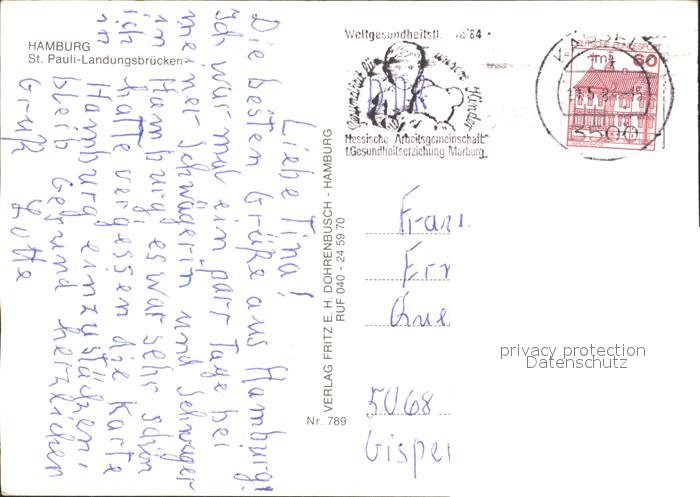 HAMBURG
St. Pauli-Landungsbrücken
Liebe Tina!
Die besten Grüße aus Hamburg!
Ich war nur ein paar Tage bei
meiner Schwägerin und Schwager
in Hamburg, es war sehr schön
ich hatte vergessen die Karte
in Hamburg einzustächen,
bleib Gesund herzlichen
Gruß Lotte
VERLAG FRITZ E. H. DOHRENBUSCH - HAMBURG
RUF 040 - 24 59 70
Nr. 789
Weltgesundheitst. '84
unsere Kinder
Hessische Arbeitsgemeinschaft
f.Gesundheitserziehung Marburg
KASSEL
3500
DEUTSCHE BUNDESPOST
60
Frau
5068
privacy protection
Datenschutz